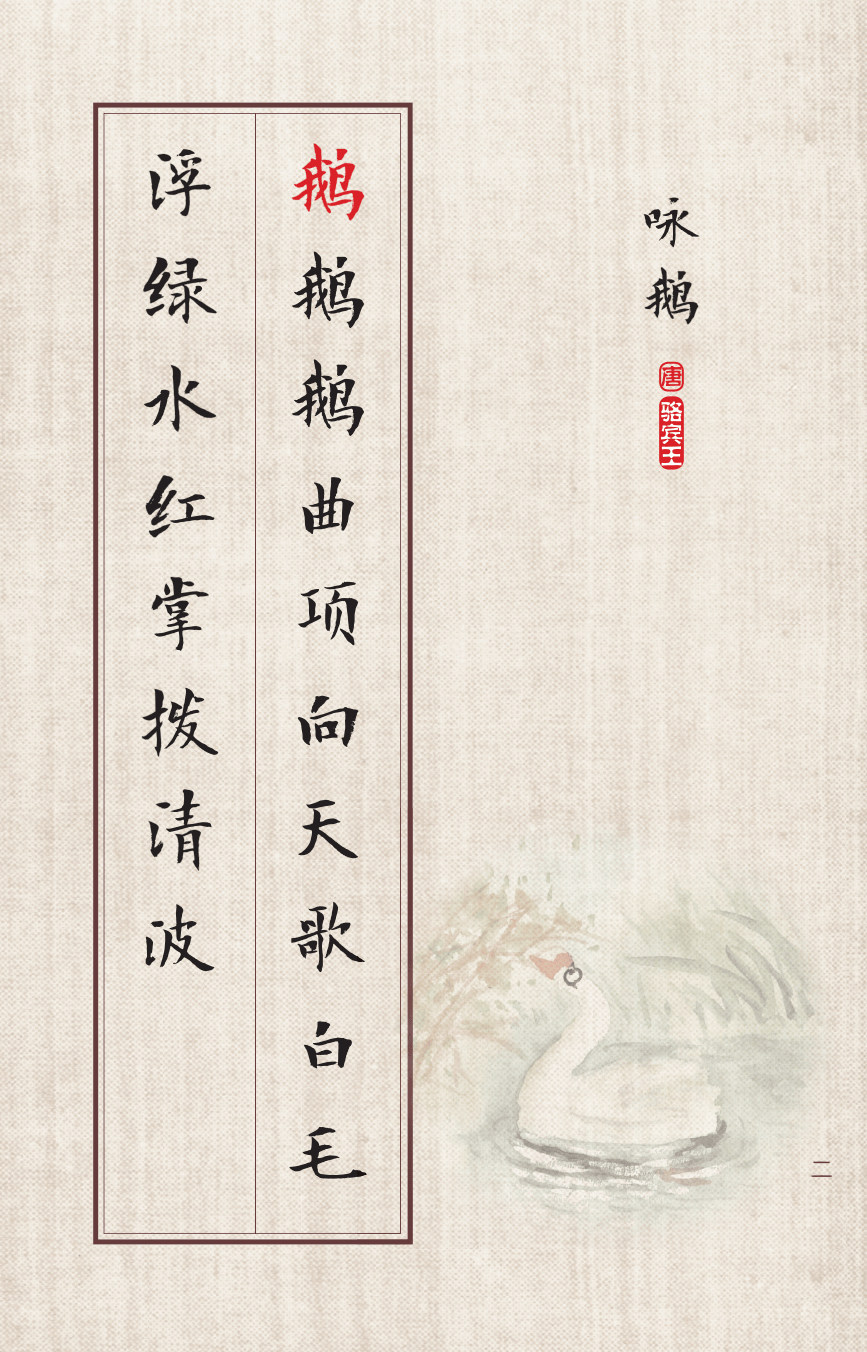 咏鹅
唐
骆宾王
鹅鹅鹅曲项向天歌白毛
浮绿水红掌拨清波
二